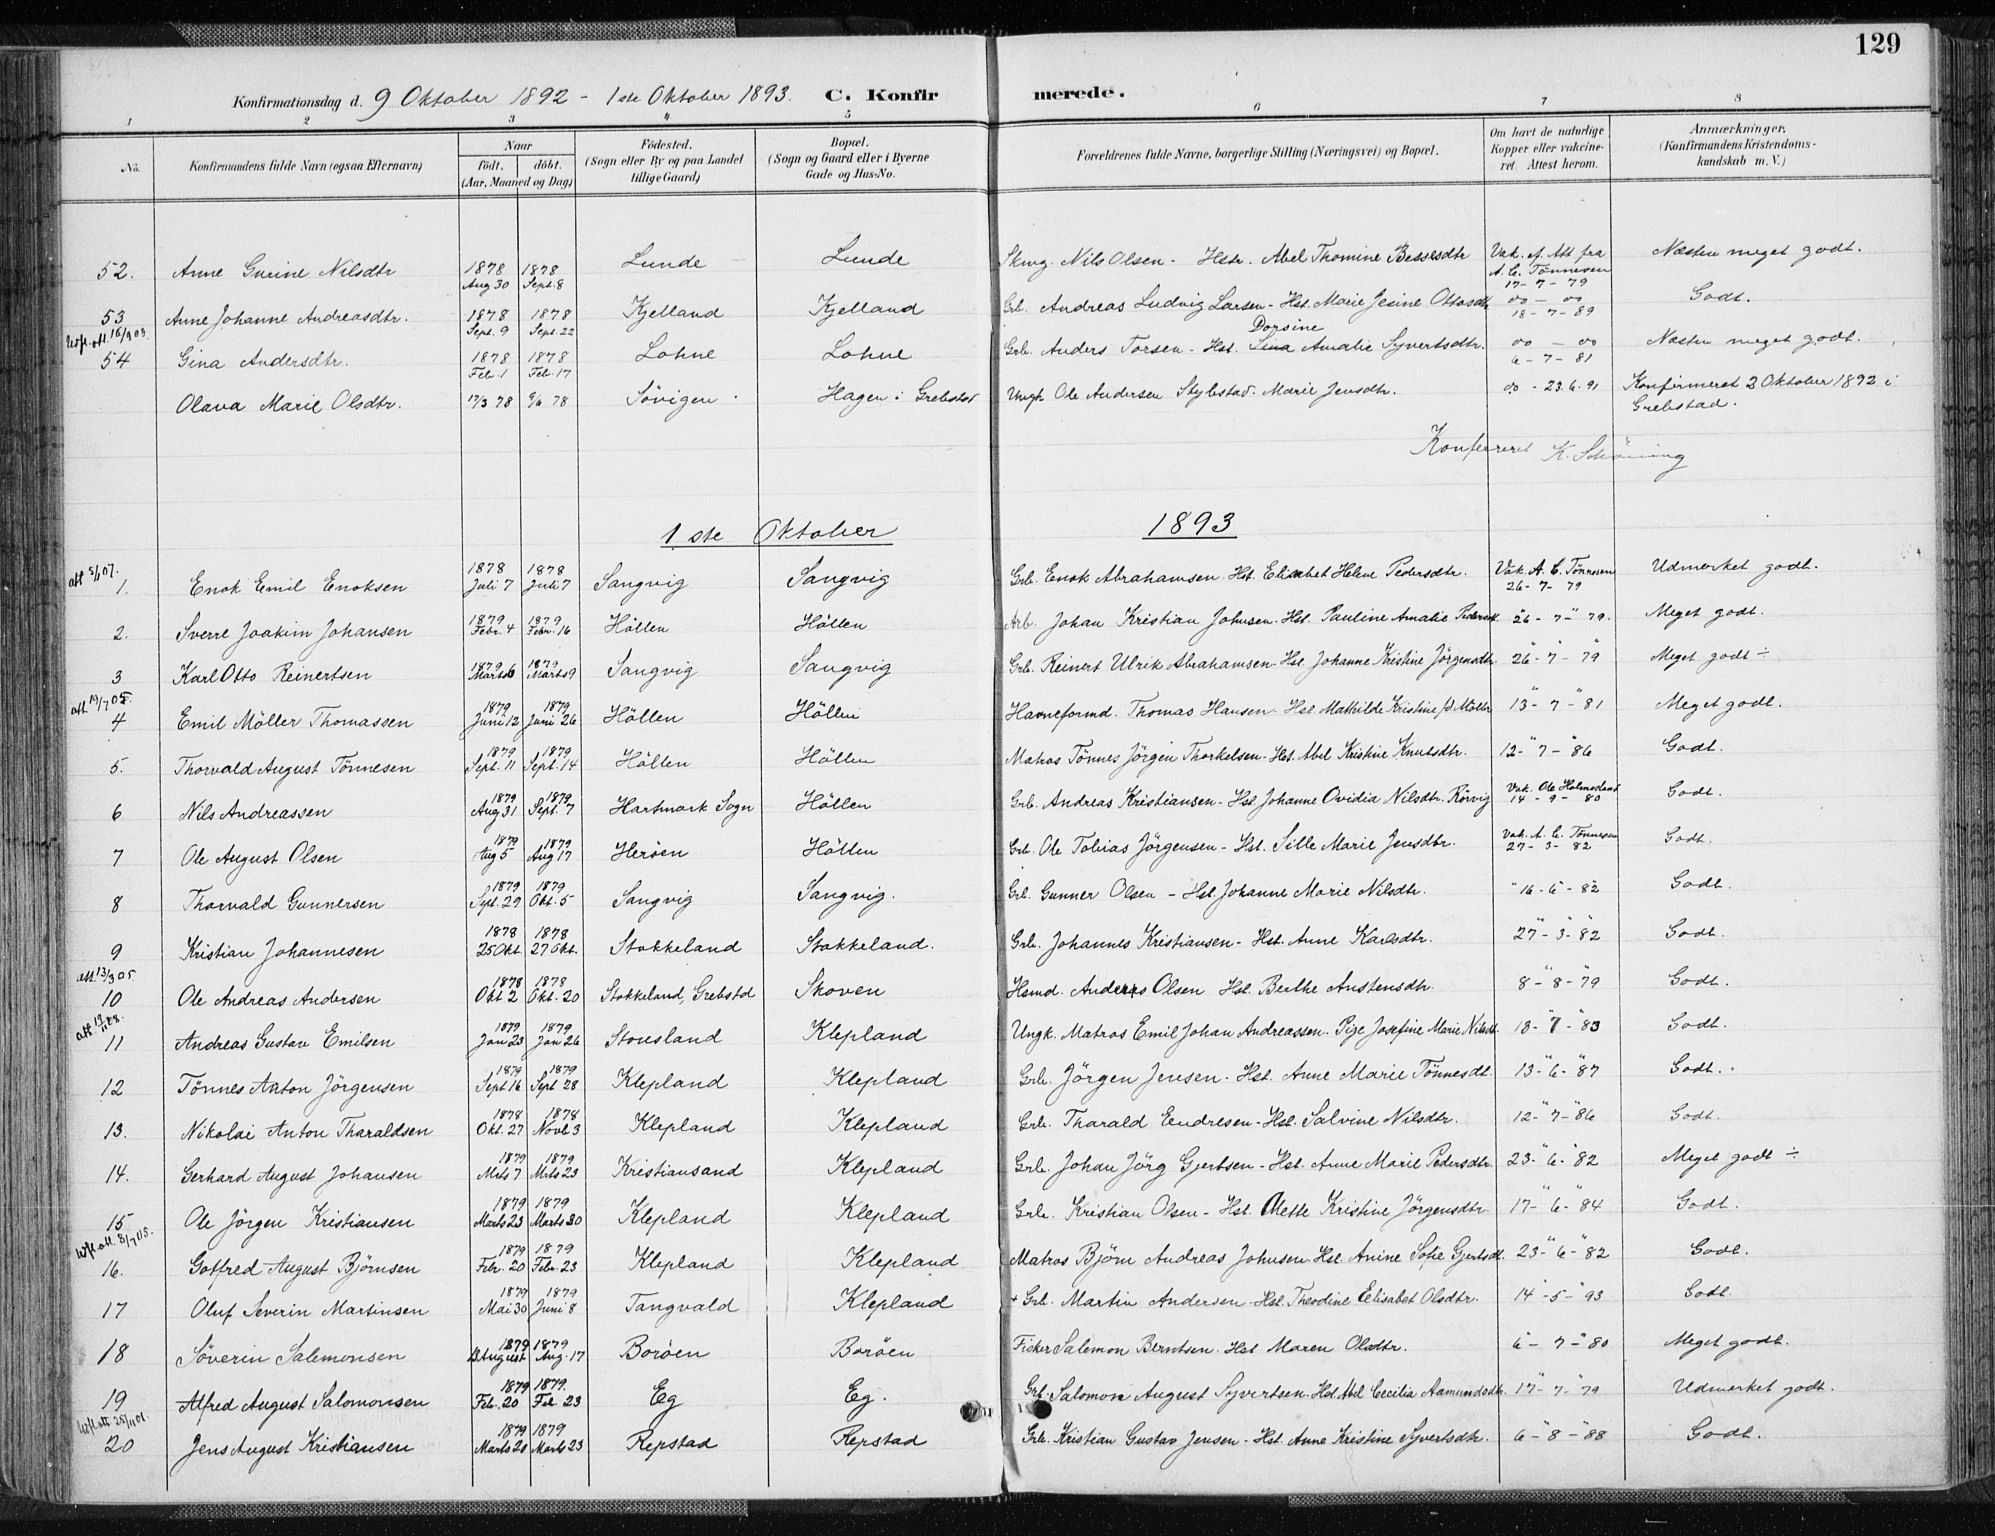 129
Konfirmationsdag d. 9 Oktober 1892 - 1ste Oktober 1893. C. Konfirmerede.
1 2 3 4 5 6 7 8
No. Konfirmandens fulde Navn (ogsaa Efternavn) Naar Födt. döbt. (Aar, Maaned og Dag) Födested. (Sogn eller By og paa Landet tillige Gaard) Bopæl. (Sogn og Gaard eller i Byerne Gade og Hus-No. Forældrenes fulde Navne, borgerlige Stilling (Næringsvei) og Bopæl. Om havt de naturlige Kopper eller vakcineret. Attest herom. Anmærkninger. (Konfirmandens Kristendomskundskab m. V.)
52. Anne Gurine Nilsdtr 1878 Aug 30 1878 Sept. 8 Lunde Lunde Skmg. Nils Olsen - Hstr. Abel Thomine Bessesdtr Vak. ef. Att fra A. C. Tönnesen 17-7-79 Næsten meget godt.
53 Anne Johanne Andreasdtr. 1878 Sept. 9 1878 Sept. 22 Kjelland Kjelland Grb. Andreas Ludvig Larsen - Hst. Marie Jesine Ottosdtr oo - oo 18-7-89 Godt.
54 Gina Andersdtr. 1878 Feb. 1 1878 Feb. 17 Lohne Lohne Grb. Anders Torsen - Hst. Dorsine Amalie Syvertsdtr. oo - oo 6-7-81 Næsten meget godt.
Olava Marie Olsdtr. 17/3 78 9/6 78 Sövigen Hagen i Grebstad Ungk Ole Andersen Stylestad. Marie Jensdtr. oo - 23.6.91 Konfirmeret 2 Oktober 1892 i Grebstad.
Konfereret K. Schöning
1 ste Oktober 1893
att 5/1 07.
1. Enok Emil Enoksen 1878 Juli 7 1878 Juli 7 Sangvig Sangvig Grb. Enok Abrahamsen. Hst. Elisabet Helene Pedersdtr. Vak. A. C. Tönnesen 26-7-79 Udmerket godt.
2. Sverre Joakim Johansen 1879 Febr. 4 1879 Febr. 16 Höllen Höllen Arb. Johan Kristian Johnsen. Hst. Pauline Amalie Pedersdt. 26-7-79. Meget godt.
3 Karl Otto Reinertsen 1879 Marts 6 1879 Marts 9 Sangvig Sangvig Grb. Reinert Ulrik Abrahamsen. Hst. Johanne Kristine Jörgensdtr. 26-7-79 Meget godt ÷
att 19/7 05.
4 Emil Möller Thomassen 1879 Juni 12 1879 Juni 26 Höllen Höllen Havneformd. Thomas Hansen. Hst. Mathilde Kristine f. Möller 13-7-81 Meget godt.
5. Thorvald August Tönnesen 1879 Sept. 11 1879 Sept. 14 Höllen Höllen Matros Tönnes Jörgen Thorkelsen - Hst. Abel Kristine Knutsdtr. 12-7-86 Godt.
6 Nils Andreassen 1879 Aug 31 1879 Sept. 7 Hartmark Sogn Höllen Grb. Andreas Kristiansen - Hst Johanne Ovidia Nilsdtr. Rörvig Vak. Ole Holmesland 14-9-80 Godt.
7 Ole August Olsen 1879 Aug 5 1879 Aug 17 Heröen Höllen Grb. Ole Tobias Jörgensen - Hst. Sille Marie Jensdtr. Vak. A. C. Tönnesen 27-3-82 Godt.
8 Thorvald Gunnersen 1879 Sept. 29 1879 Okt. 5 Sangvig Sangvig. Grb. Gunner Olsen - Hst. Johanne Marie Nilsdtr. 16-6-82 Godt.
9 Kristian Johannesen 1878 25 Okt. 1878 27 Okt. Stokkeland Stokkeland. Grb. Johannes Kristiansen - Hst. Anne Karlsdtr. 27-3-82 Godt.
att. 13/3 05.
10 Ole Andreas Andersen 1878 Okt 2 1878 Okt. 20 Stokkeland, Grebstd Skoven Hsmd. Anders Olsen Hst. Berthe Austensdtr. 8-8-79 Godt.
11 Andreas Gustav Emilsen 1879 Jan 23 1879 Jan 26 Stousland Klepland Ungk. Matros Emil Johan Andreassen. Pige Josefine Marie Nilsdt. 18-7-83 Godt.
12 Tönnes Anton Jörgensen 1879 Sept 16 1879 Sept 28 Klepland Klepland Grb. Jörgen Jensen. Hst. Anne Marie Tönnesdt. 13-6-87 Godt.
13. Nikolai Anton Tharaldsen 1878 Okt. 27 1878 Novb 3 Klepland Klepland Grb. Tharald Endresen - Hst. Salvine Nilsdtr. 12-7-86 Godt.
14. Gerhard August Johansen 1879 Mrts 7 1879 Mrts 23 Kristiansand Klepland Grb. Johan Jörg Gjertsen - Hst. Anne Marie Pedersdtr. 23-6-82 Meget godt ÷
15 Ole Jörgen Kristiansen 1879 Marts 23 1879 Marts 30 Klepland Klepland Grb. Kristian Olsen - Hst. Mette Kristine Jörgensdtr. 17-6-84 Godt.
16. Gotfred August Björnsen 1879 Febr. 20 1879 Febr. 23 Klepland Klepland Matros Björn Andreas Johnsen. Hst. Anine Sofie Gjertsdt. 23-6-82 Godt.
17 Oluf Severin Martinsen 1879 Mai 30 1879 Juni 8 Tangvald Klepland + Grb. Martin Andersen. Hst. Theodine Elisabet Olsdtr. 14-5-93 Godt
18 Söverin Salemonsen 1879 13 August 1879 Aug. 17 Boröen Boröen Fisker Salemon Berntsen. Hst Maren Olsdtr. 6-7-80 Meget godt.
19 Alfred August Salomonsen 1879 Feb. 20 1879. Feb 23 Eg Eg. Grb. Salomon August Syvertsen. Hst. Abel Cecilia Aamundsdtr. 17-7-79 Udmerket godt.
20 Jens August Kristiansen 1879 Marts 20 1879 Marts 23 Repstad Repstad Grb. Kristian Gustav Jensen - Hst. Anne Kristine Syvertsdtr. 6-8-88 Godt.